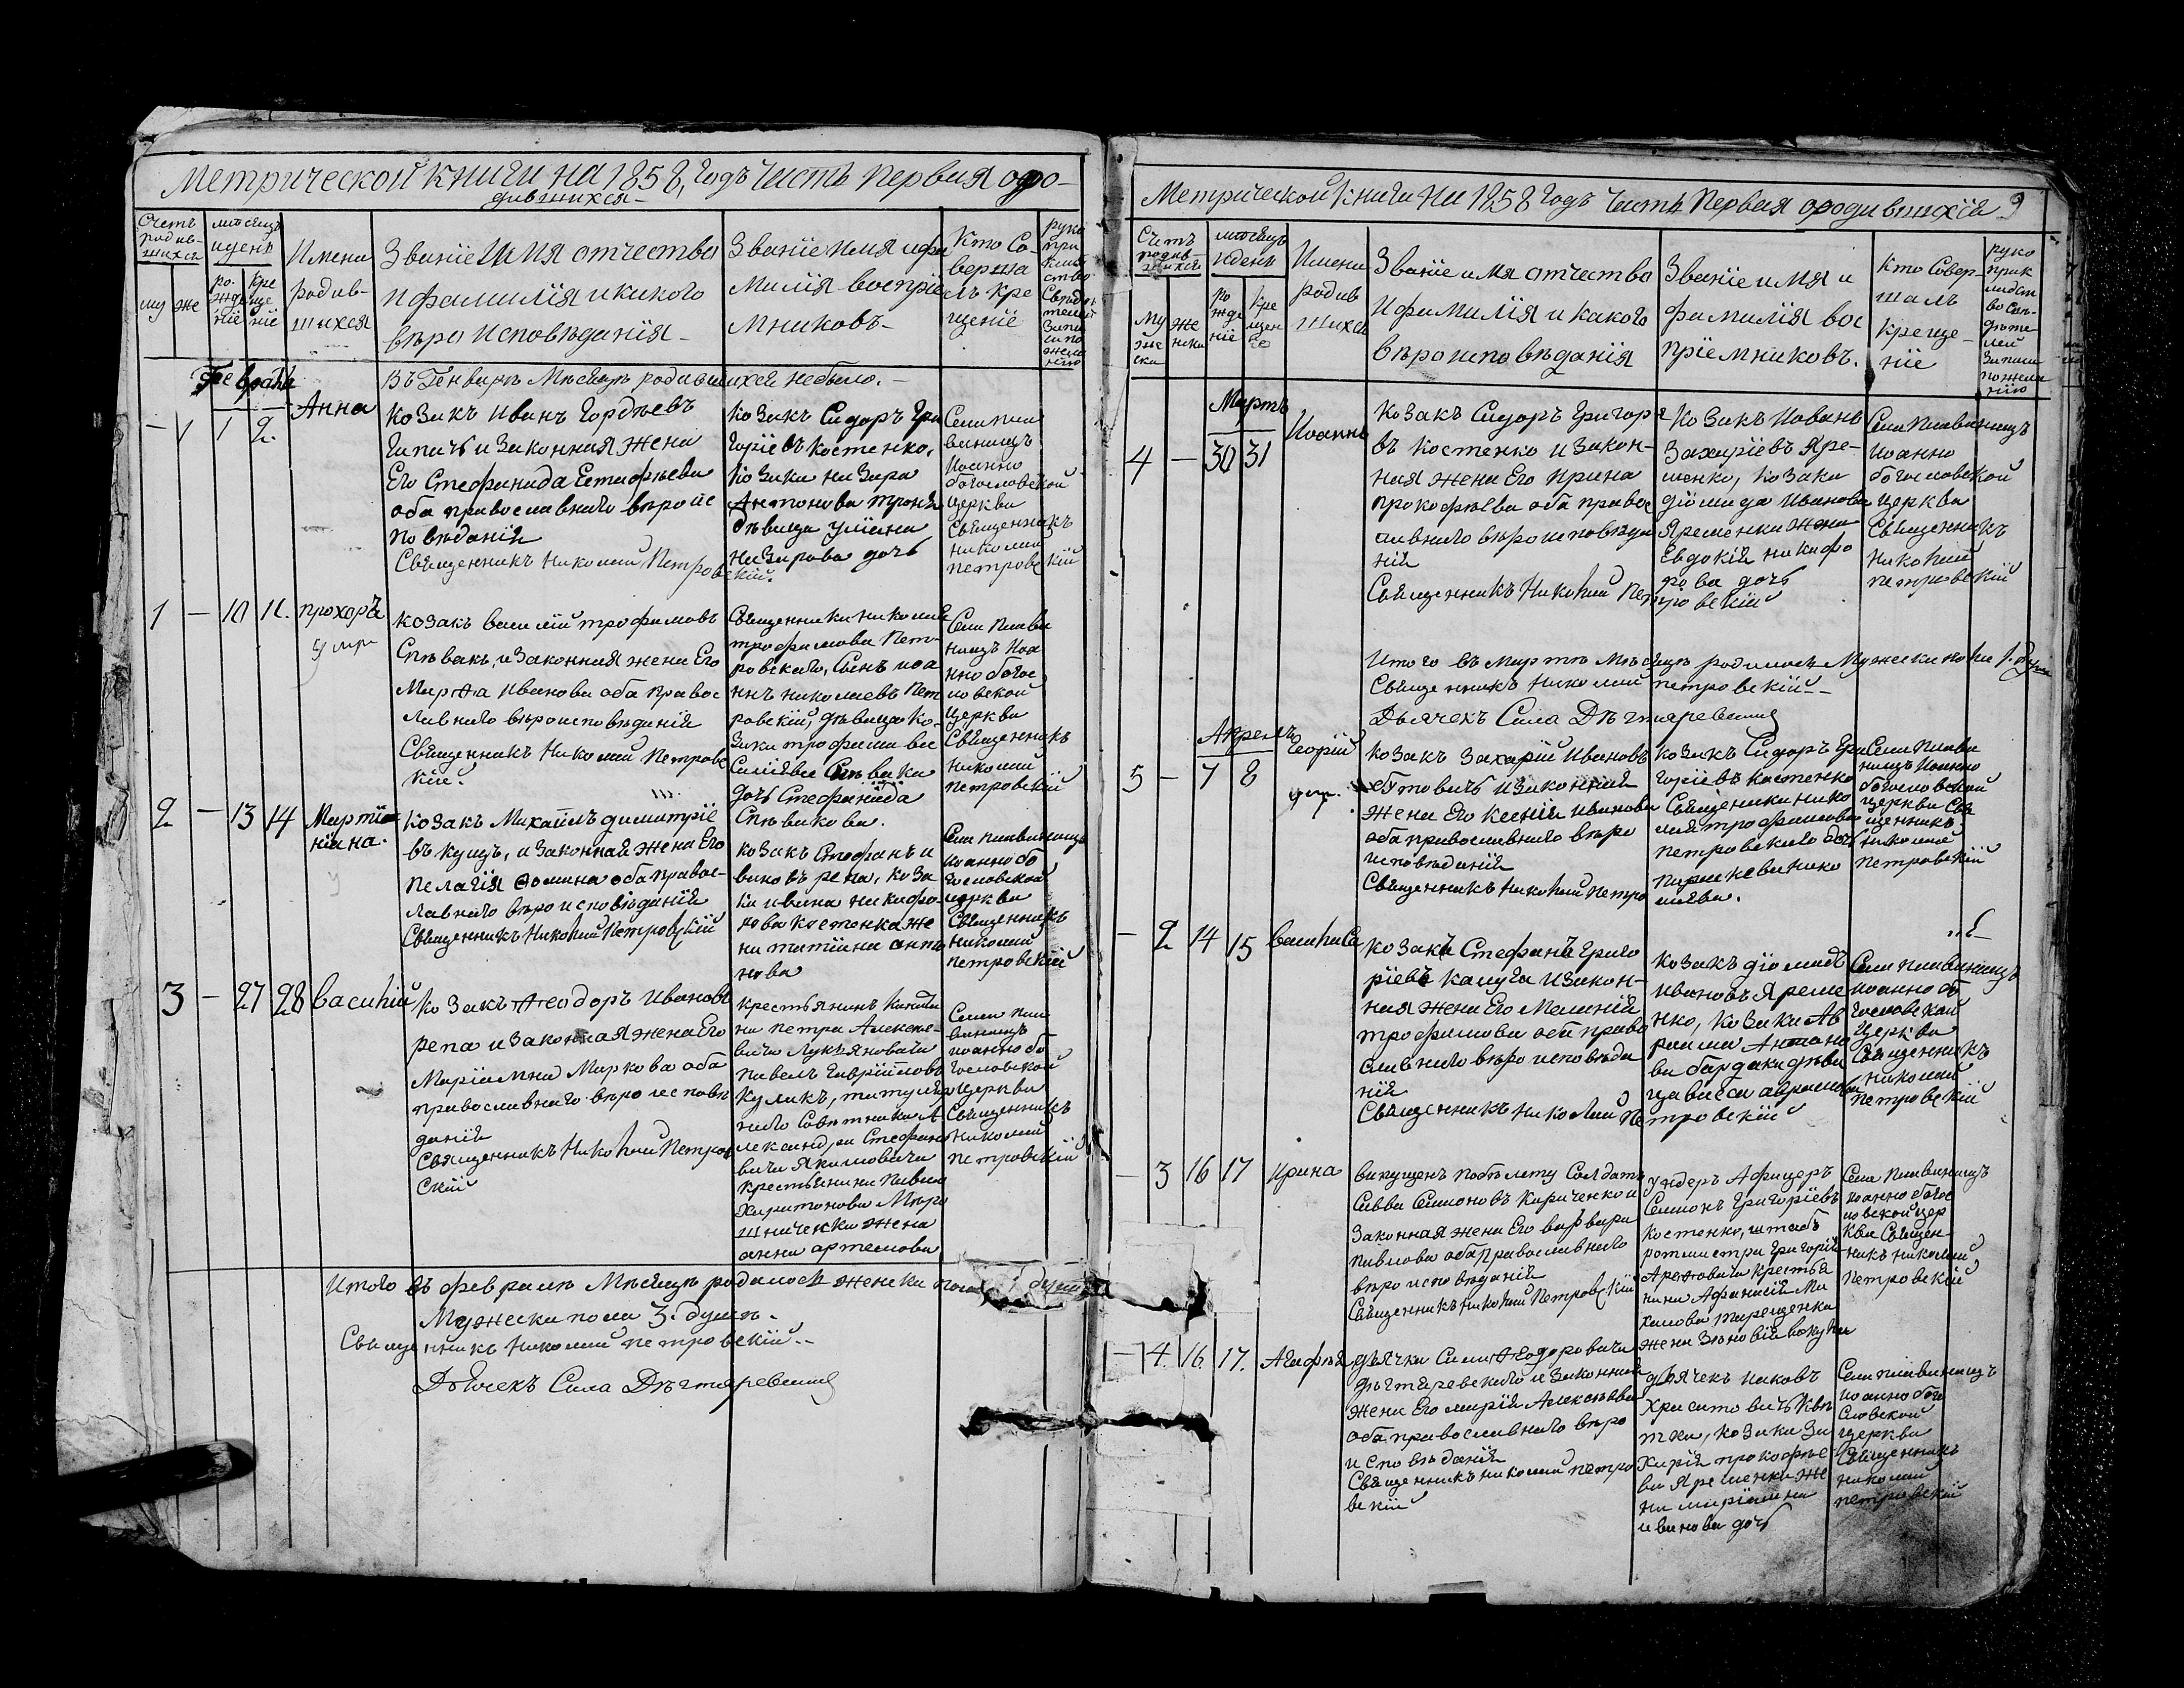 Метрической книги на 1858, годъ Часть первая о ро-
дившихся-
Счетъ
родив-
шихся
мѣсяцъ
и день
Имена
родив-
шихся
Званіе Имя отчество
и фамилія и какого
вѣроисповѣданія-
Званіе имя и фа
милія воспріе
мниковъ-
Кто Со-
верша
лъ кре
щеніе
руко
при
клад
ство
Свѣдѣ
телей
записи
по
жела
нію
му
же
ро-
жде
ніе
кре
ще
ніе
Въ Генварѣ Мѣсяцѣ родившихся небыло.-
Февраль
- 1 1 2.
Анна
Козакъ Иванъ Гордѣевъ
и Законная Жена
Его Стефанида Евстафѣева
оба православнаго вѣроис
повѣданія
Священникъ Николай Петровскій.
Козакъ Сидоръ Гри
горіевъ Костенко,
Козака Назара
Антонова
дѣвица Уліана
Назарова дочь
Семипли
вницъ
Іоанно
богословской
церкви
Священникъ
Николай
петровскій
1 - 10 11. прохоръ
умр
Козакъ василій трофимовъ
Спѣвакъ, и Законная жена Его
Марѳа Иванова оба правос
лавнаго вѣроисповѣданія
Священникъ Николай Петровс
кій.
Священника николая
трофимова Пет-
ровскаго, Сынъ иоа
ннъ николаевъ Пет
ровскій, дѣвица Ко-
зака трофима ва
силіева Спѣвака
дочь Стефанида
Спѣвакова.
Семипливи
ницъ Иоа
нно богос
ловской
Церкви
Священникъ
Николай
петровскій
2 - 13 14 Мартин
ніана.
Козакъ Михаилъ димитріе
въ Куцъ, и Законная жена Его
Пелагія Ѳомина оба правос-
лавнаго вѣроисповѣданія
Священникъ Николай Петровскій
Козакъ Стефанъ и
вановъ репа, Коза
ка ивана никифо-
рова костенка же
на татіана анто
нова
Семипливиницъ
иоанно бо
гословской
церкви
Священникъ
николай
петровскій
3 - 27 28 Василій
Козакъ Ѳеодоръ Ивановъ
репа и Законная жена Его
Маріамна Маркова оба
православнаго вѣроисповѣ
данія
Священникъ Николай Петров
скій
Крестьянинъ
на петра Алексѣе-
вича Лукьяновича
павелъ Гавриіловъ
Куликъ, титуляр
наго Совѣтника А
лександра Стефано
вича Якимовича
Крестьянина Павла
Харитонова Миро
шниченка жена
анна артемова
Семипли
виницъ
иоанно бо
гословской
Церкви
Священникъ
николай
петровскій
Итого въ февралѣ Мѣсяцѣ родилось женска пола 1 душа
Мужеска пола 3. душъ.
Священникъ Николай петровскій.-
Дьячекъ Сила Дѣгтяревскій
Метрической Книги на 1858 годъ Часть Первая о родившихся 9
Счетъ
родив-
шихся
мѣсяцъ
и день
Имена
родив
шихся
Званіе имя отчество
и фамилія и какого
вѣроисповѣданія
Званіе имя и
фамилія вос
пріемниковъ.
Кто Совер-
шалъ
крещe-
ніе
руко
прик
ладст
во Сви-
дѣте
лей
записи
по жела
нію
му
же
ска
же
нска
ро
жде
ніе
кре
щен
іе
Мартъ
4 - 30 31
Иоаннъ
Козакъ Сидоръ Григоріе
въ Костенко и Закон-
ная жена Его Ирина
прокофьева оба правос
лавнаго вѣроисповѣда
нія
Священникъ Николай Петровскій
Козакъ Иованъ
Захаріевъ Яре-
менко, Козака
діомида Иванова
Яременка жена
Евдокія никифо
рова дочь
Семипливиницъ
иоанно
богословской
Церкви
Священникъ
Николай
петровскій
Итого въ Мартѣ Мѣсяцѣ родилось Мужеска пола 1. душа
Священникъ Николай петровскій-
Дьячекъ Сила Дѣгтяревскій
Апрель
5 - 7 8
Георгій
умр.
Козакъ Захарій Ивановъ
и законная
жена Его Ксенія Иванова
оба православнаго вѣро
исповѣданія
Священникъ Николай Петро
Козакъ Сидоръ Гри
горіевъ Костенко
Священика нико
лая трофимова
петровского дочь
параскева нико
лаева.
Семипливи
ницъ Иоанно
богословской
церкви Свя
щенникъ
николай
петровскій
- 2 14 15 Василиса
Козакъ Стефанъ Григо
ріевъ Калуга и Закон-
ная жена Его Меланія
трофимова оба право
славнаго вѣроисповѣда
нія
Священникъ Николай Петровскій
Козакъ діомидъ
Ивановъ Яреме
нко, Козака Ав
раама Антоно
ва бардака дѣви
ца васса аврамова
Семипливиницъ
иоанно бо
гословской
Церкви
Священникъ
николай
петровскій
- 3 16 17 Ирина
вапущенъ по билету Солдатъ
Савва Семіоновъ Кириченко и
Законная жена Его варвара
Павлова оба православнаго
вѣроисповѣданія
Священникъ Николай Петровскій
ундеръ Афицеръ
Семіонъ Григоріевъ
Костенко, штабъ
ротмистра Григорія
Крестья
нина Афанасія Ми
хаилова терещенка
жена Зѣновія
Семипливиницъ
иоанно богос
ловской цер
кви Священ-
никъ Николай
петровскій
- 4. 16. 17. Агафія
дьячка Силы Ѳеодоровича
Дѣгтяревскаго и Законная
жена Его марія Алексѣева
оба православнаго вѣро
исповѣданія
Священникъ николай петро
вскій
дьячекъ иаковъ
Хрисантовичъ Квѣ
тка, Козака За
харія прокофье
ва Яременка же
на маріамна
иванова дочь
Семипливиницъ
иоанно бого
словской
церкви
Священникъ
николай
петровскій